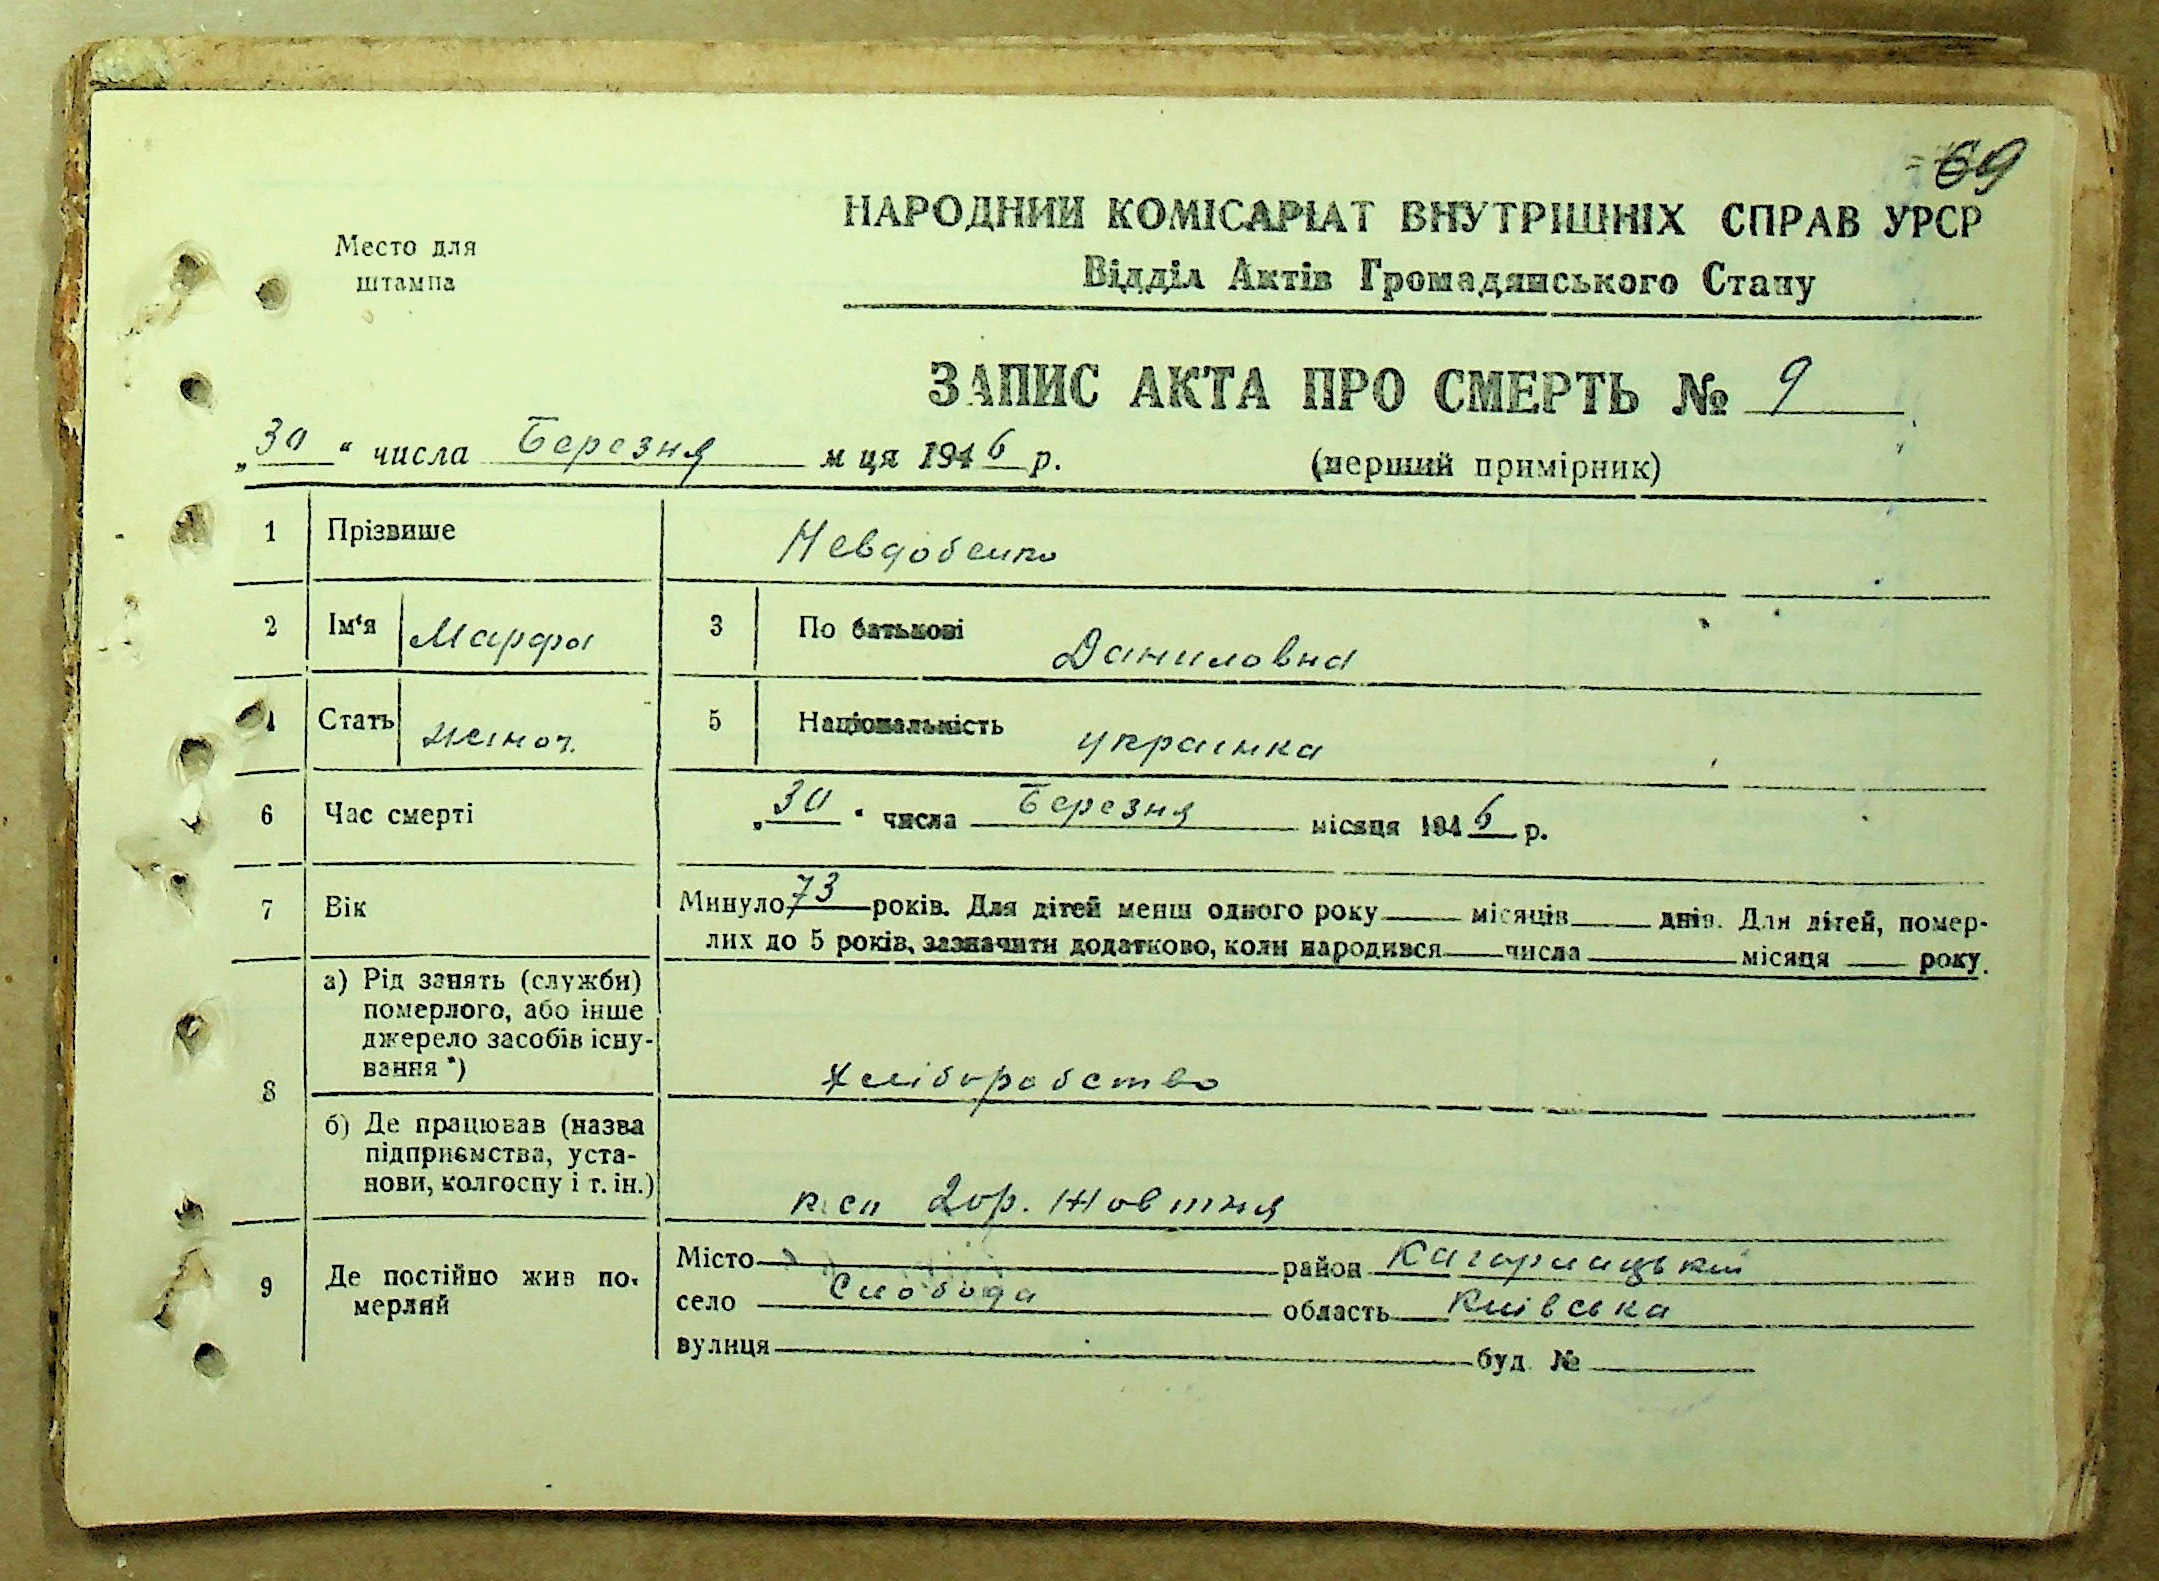 69
НАРОДНИЙ КОМІСАРІАТ ВНУТРІШНІХ СПРАВ УРСР
Место для
штампа
Відділ Актів Громадянського Стану
ЗАПИС АКТА ПРО СМЕРТЬ № 9
„30“ числа Березня м ця 1946 р.
(перший примірник)
1 Прізвише Невдобенко
2 Ім‘я Марфа 3 По батькові Даниловна
4 Стать жіноч. 5 Національність украінка
6 Час смерті „30“ числа Березня місяця 1946 р.
7 Вік Минуло 73 років. Для дітей менш одного року місяців днів. Для дітей, помер-
лих до 5 років, зазначити додатково, коли народився числа місяця року.
8 а) Рід занять (служби)
померлого, або інше
джерело засобів існу-
вання *) хліборобство
б) Де працював (назва
підприємства, уста-
нови, колгоспу і т. ін.) 2ор. Жовтня
9 Де постійно жив по-
мерлий
Місто район Кагарлицькій
село Слобода область Київська
вулиця буд. №